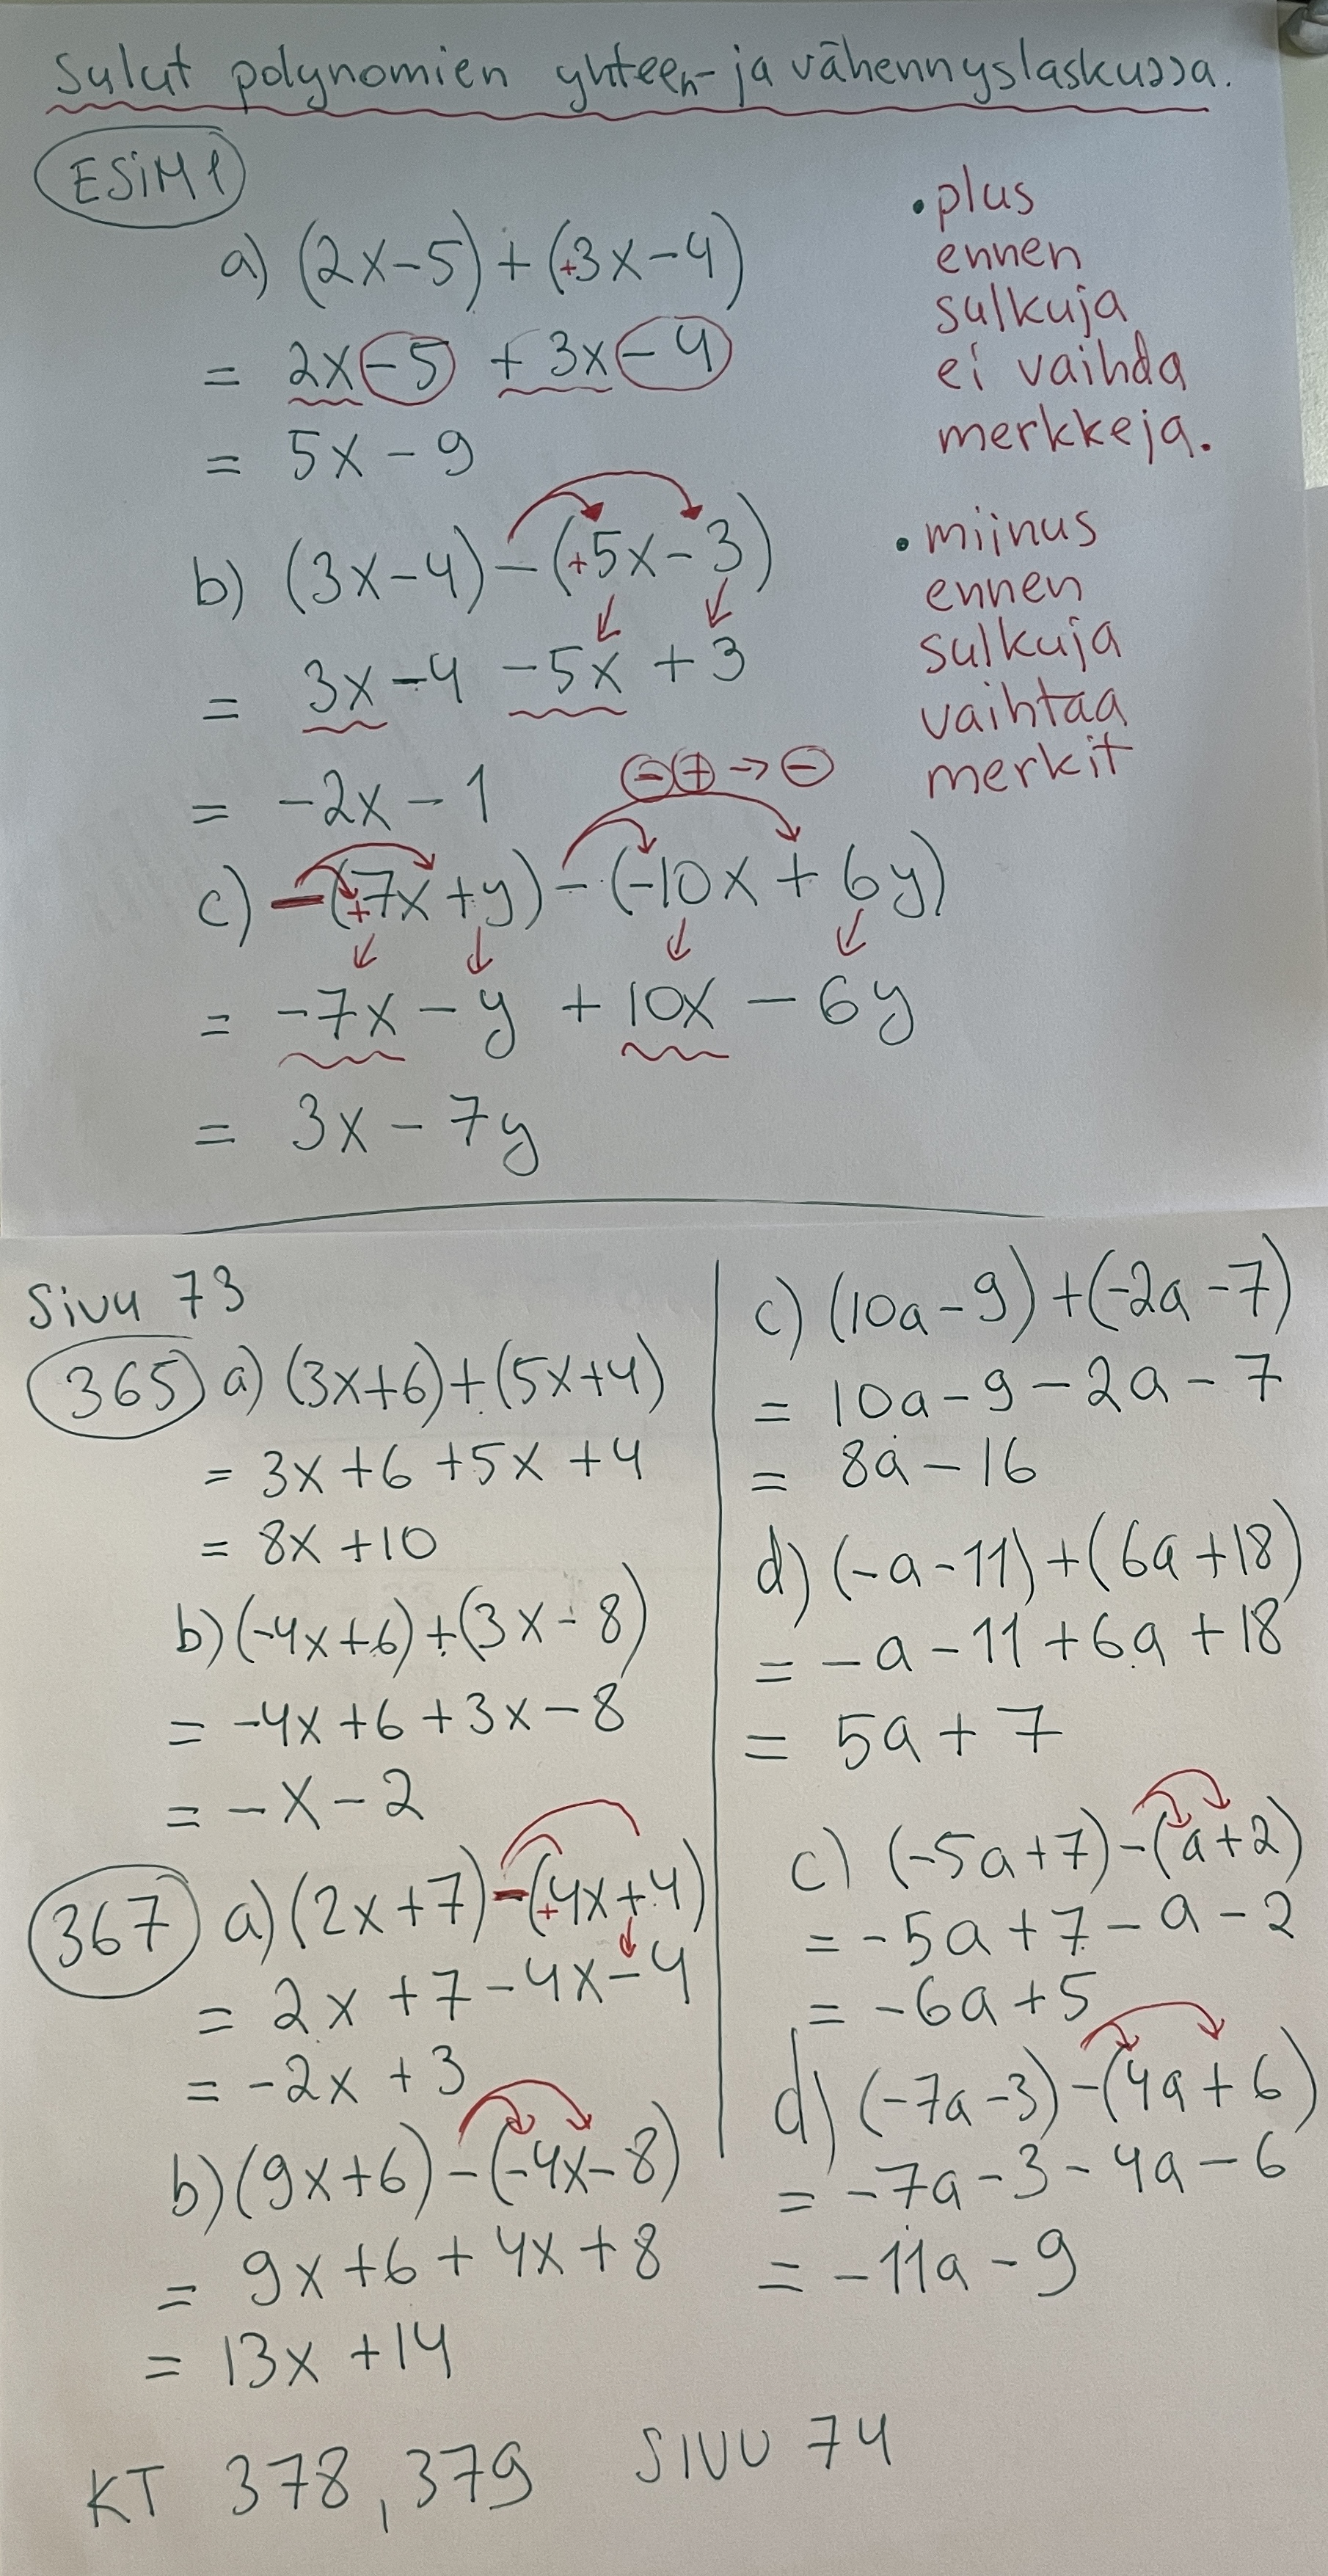 Sulut polynomien yhteen- ja vähennyslaskussa.
ESIM 1
a) (2x-5)+(+3x-4)
= 2x-5 +3x-4
= 5x-9
• plus
ennen
sulkuja
ei vaihda
merkkejä.
b) (3x-4)-(+5x-3)
= 3x-4 -5x +3
= -2x-1
• miinus
ennen
sulkuja
vaihtaa
merkit
⊖⊕→⊖
c) -(+7x+y)-(-10x+6y)
= -7x-y +10x-6y
= 3x-7y
Sivu 73
365 a) (3x+6)+(5x+4)
= 3x+6+5x+4
= 8x+10
b) (-4x+6)+(3x-8)
= -4x+6+3x-8
= -x-2
c) (10a-9)+(-2a-7)
= 10a-9-2a-7
= 8a-16
d) (-a-11)+(6a+18)
= -a-11+6a+18
= 5a+7
367 a) (2x+7)-(+4x+4)
= 2x+7-4x-4
= -2x+3
b) (9x+6)-(-4x-8)
= 9x+6+4x+8
= 13x+14
c) (-5a+7)-(a+2)
= -5a+7-a-2
= -6a+5
d) (-7a-3)-(4a+6)
= -7a-3-4a-6
= -11a-9
KT 378, 379 SIVU 74